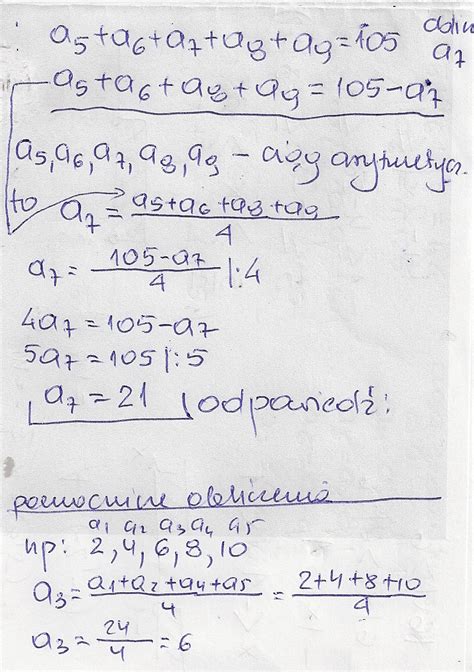 a5+a6+a7+a8+a9=105 oblicz
a7
a5+a6+a8+a9=105-a7
a5,a6,a7,a8,a9 - ciąg arytmetycz.
to a7=(a5+a6+a8+a9)/4
a7=(105-a7)/4 |:4
4a7=105-a7
5a7=105|:5
a7=21 odpowiedź:
pomocnicze obliczenia
a1 a2 a3 a4 a5
np: 2,4,6,8,10
a3=(a1+a2+a4+a5)/4=(2+4+8+10)/4
a3=24/4=6